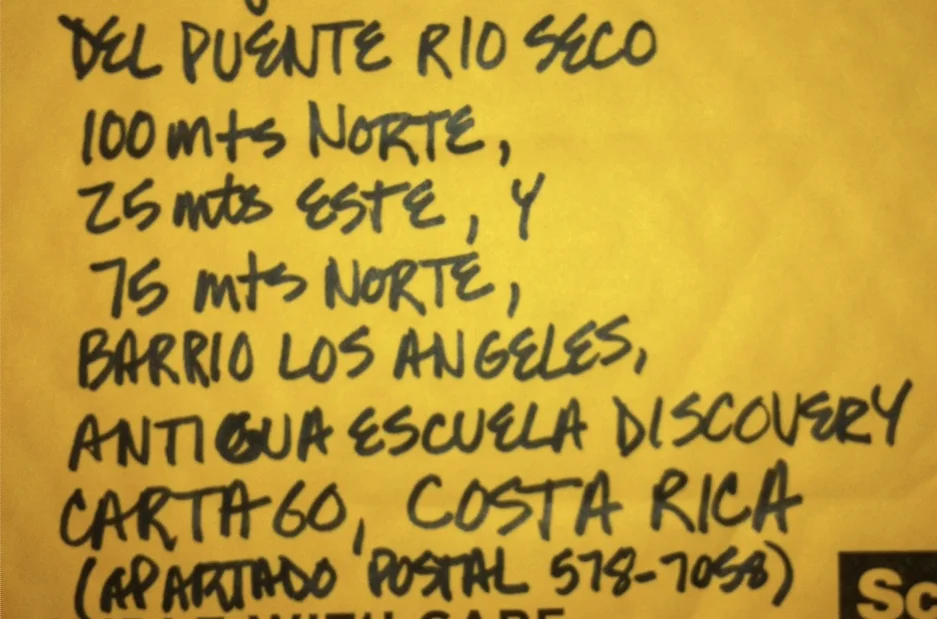 DEL PUENTE RIO SECO
100 mts NORTE,
25 mts ESTE, Y
75 mts NORTE,
BARRIO LOS ANGELES,
ANTIGUA ESCUELA DISCOVERY
CARTAGO, COSTA RICA
(APARTADO POSTAL 578-7058)
WITH CARE
Sc